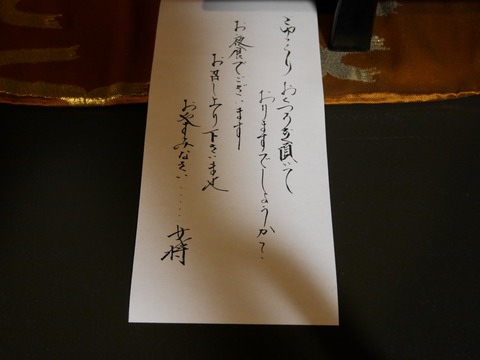 ごゆっくり おくつろぎ頂いて
おりますでしょうか?
お夜食でございます
お召し上り下さいませ
おやすみなさい.....
女将